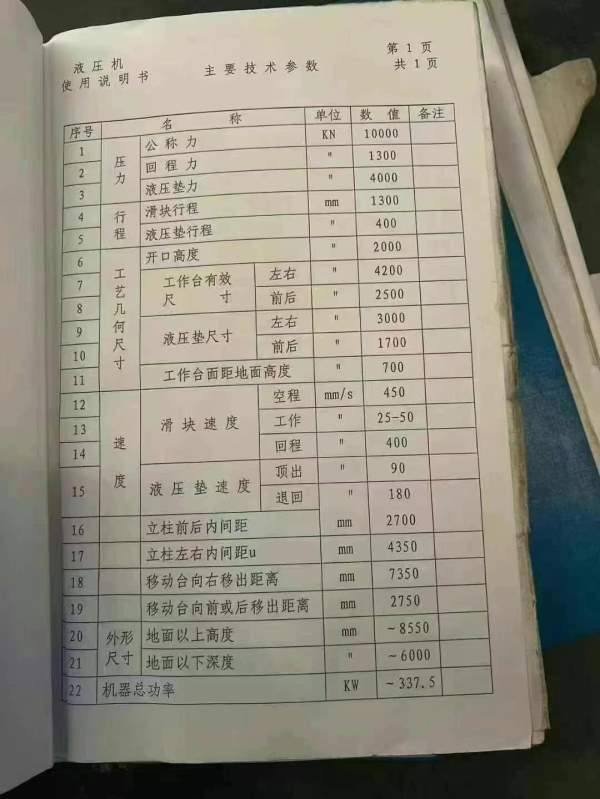 液压机
使用说明书
主要技术参数
第 1 页
共 1 页
序号 名 称 单位 数 值 备注
压力
1 公称力 KN 10000
2 回程力 〃 1300
3 液压垫力 〃 4000
行程
4 滑块行程 mm 1300
5 液压垫行程 〃 400
工艺几何尺寸
6 开口高度 〃 2000
工作台有效
尺 寸
7 左右 〃 4200
8 前后 〃 2500
液压垫尺寸
9 左右 〃 3000
10 前后 〃 1700
11 工作台面距地面高度 〃 700
速度
滑块速度
12 空程 mm/s 450
13 工作 〃 25-50
14 回程 〃 400
15 液压垫速度
顶出 〃 90
退回 〃 180
16 立柱前后内间距 mm 2700
17 立柱左右内间距u mm 4350
18 移动台向右移出距离 mm 7350
19 移动台向前或后移出距离 mm 2750
外形
尺寸
20 地面以上高度 mm ~8550
21 地面以下深度 〃 ~6000
22 机器总功率 KW ~337.5